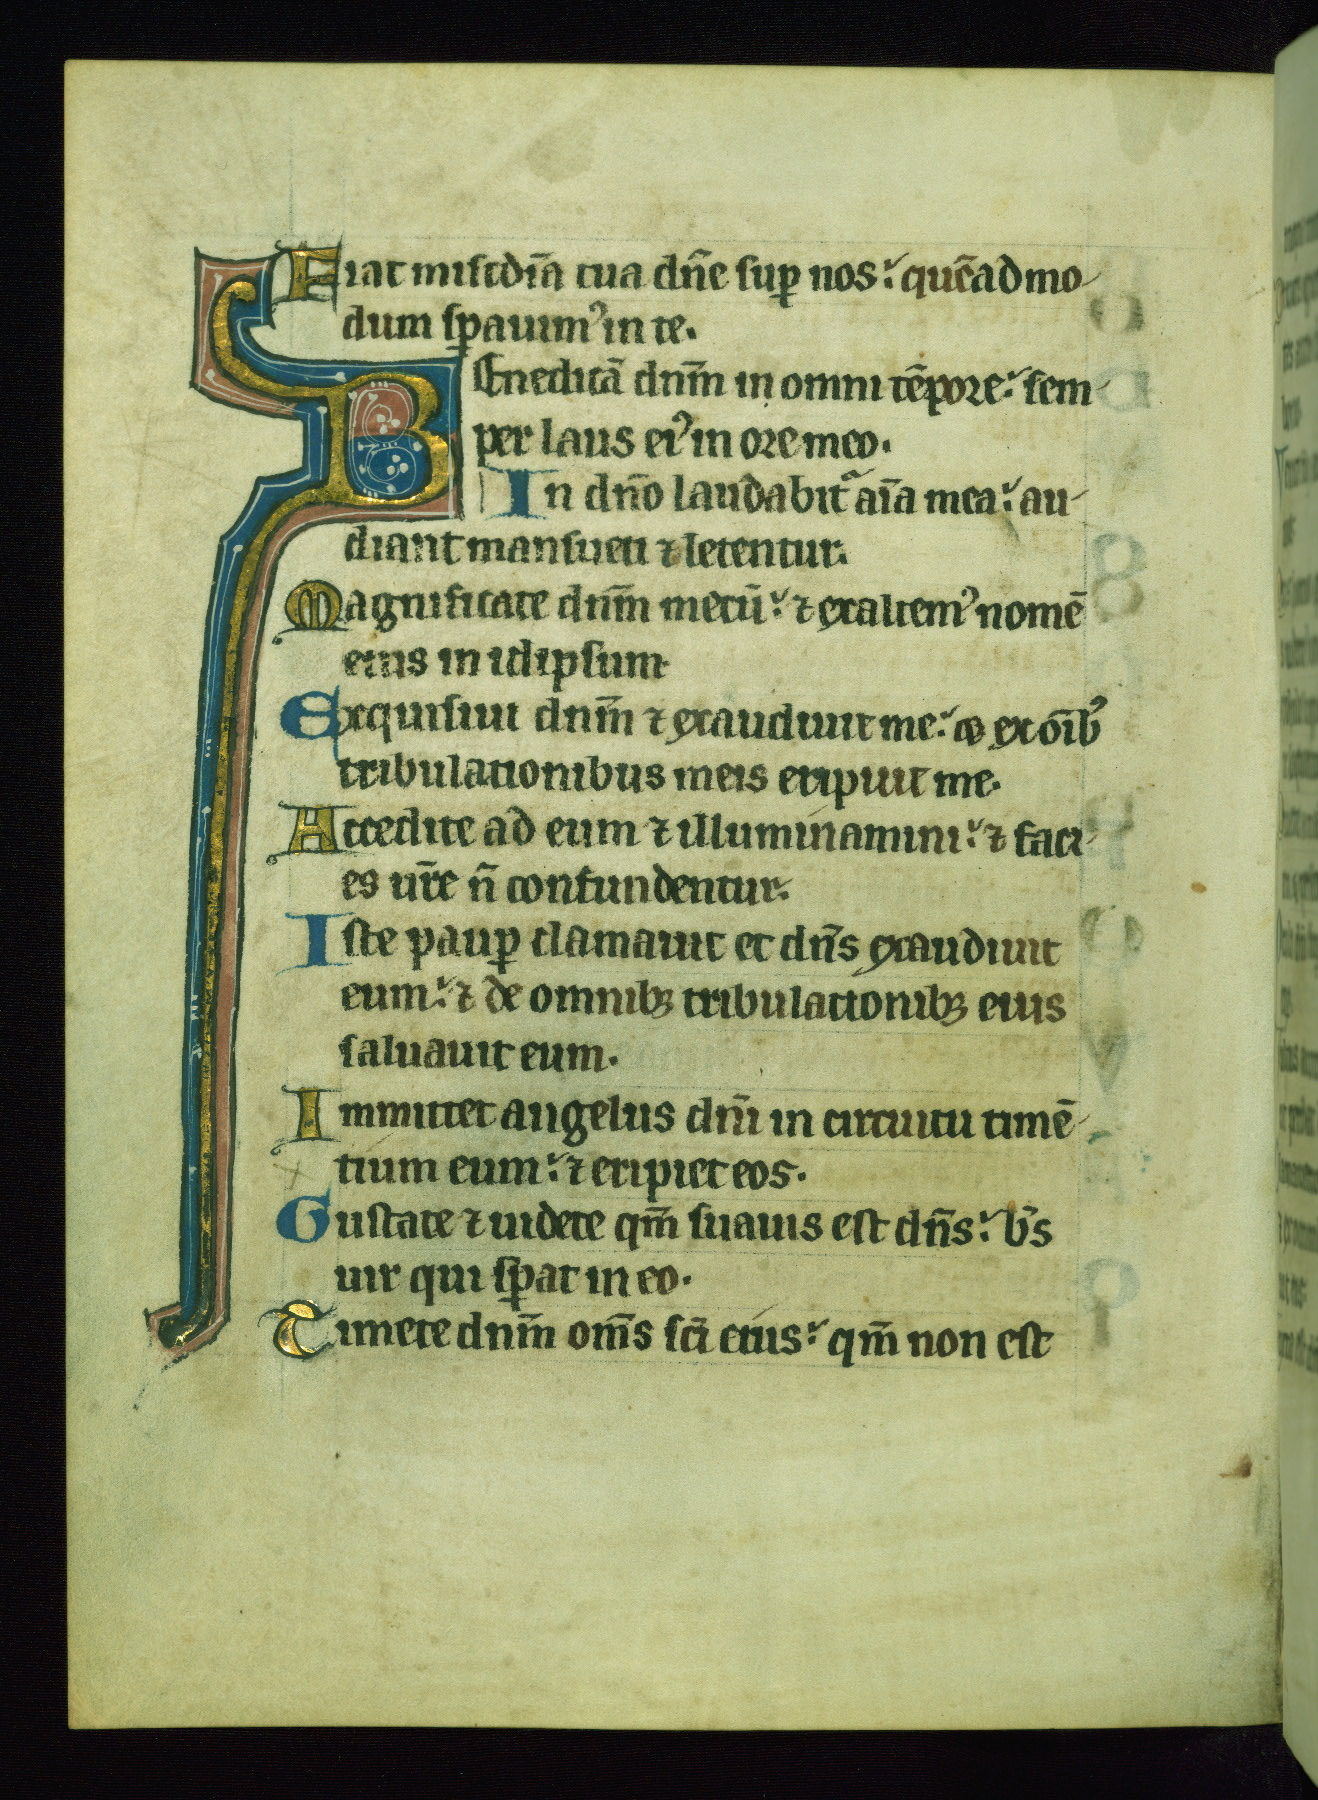 Fiat misc̄dīa tua dn̄e suꝑ nos: quēadmo
dum sꝑauimꝰ in te.
Benedicā dnm̄ in omni tēpore: sem
per laus eiꝰ in ore meo.
In dn̄o laudabitᷣ aīa mea: au
diant mansueti ⁊ letentur.
Magnificate dnm̄ mecū: ⁊ exaltemꝰ nomē
eius in idipsum
Exquisiui dnm̄ ⁊ exaudiuit me: ⁊ ex oībꝰ
tribulationibus meis eripuit me.
Accedite ad eum ⁊ illuminamini: ⁊ faci
es ur̄e n̄ confundentur.
Iste pauꝑ clamauit et dn̄s exaudiuit
eum: ⁊ de omnibꝫ tribulationibꝫ eius
saluauit eum.
Immittet angelus dn̄i in circuitu timē
tium eum: ⁊ eripiet eos.
Gustate ⁊ uidete qm̄ suauis est dn̄s: b̄s
uir qui sꝑat in eo.
Timete dnm̄ om̄s sc̄i eius: qm̄ non est